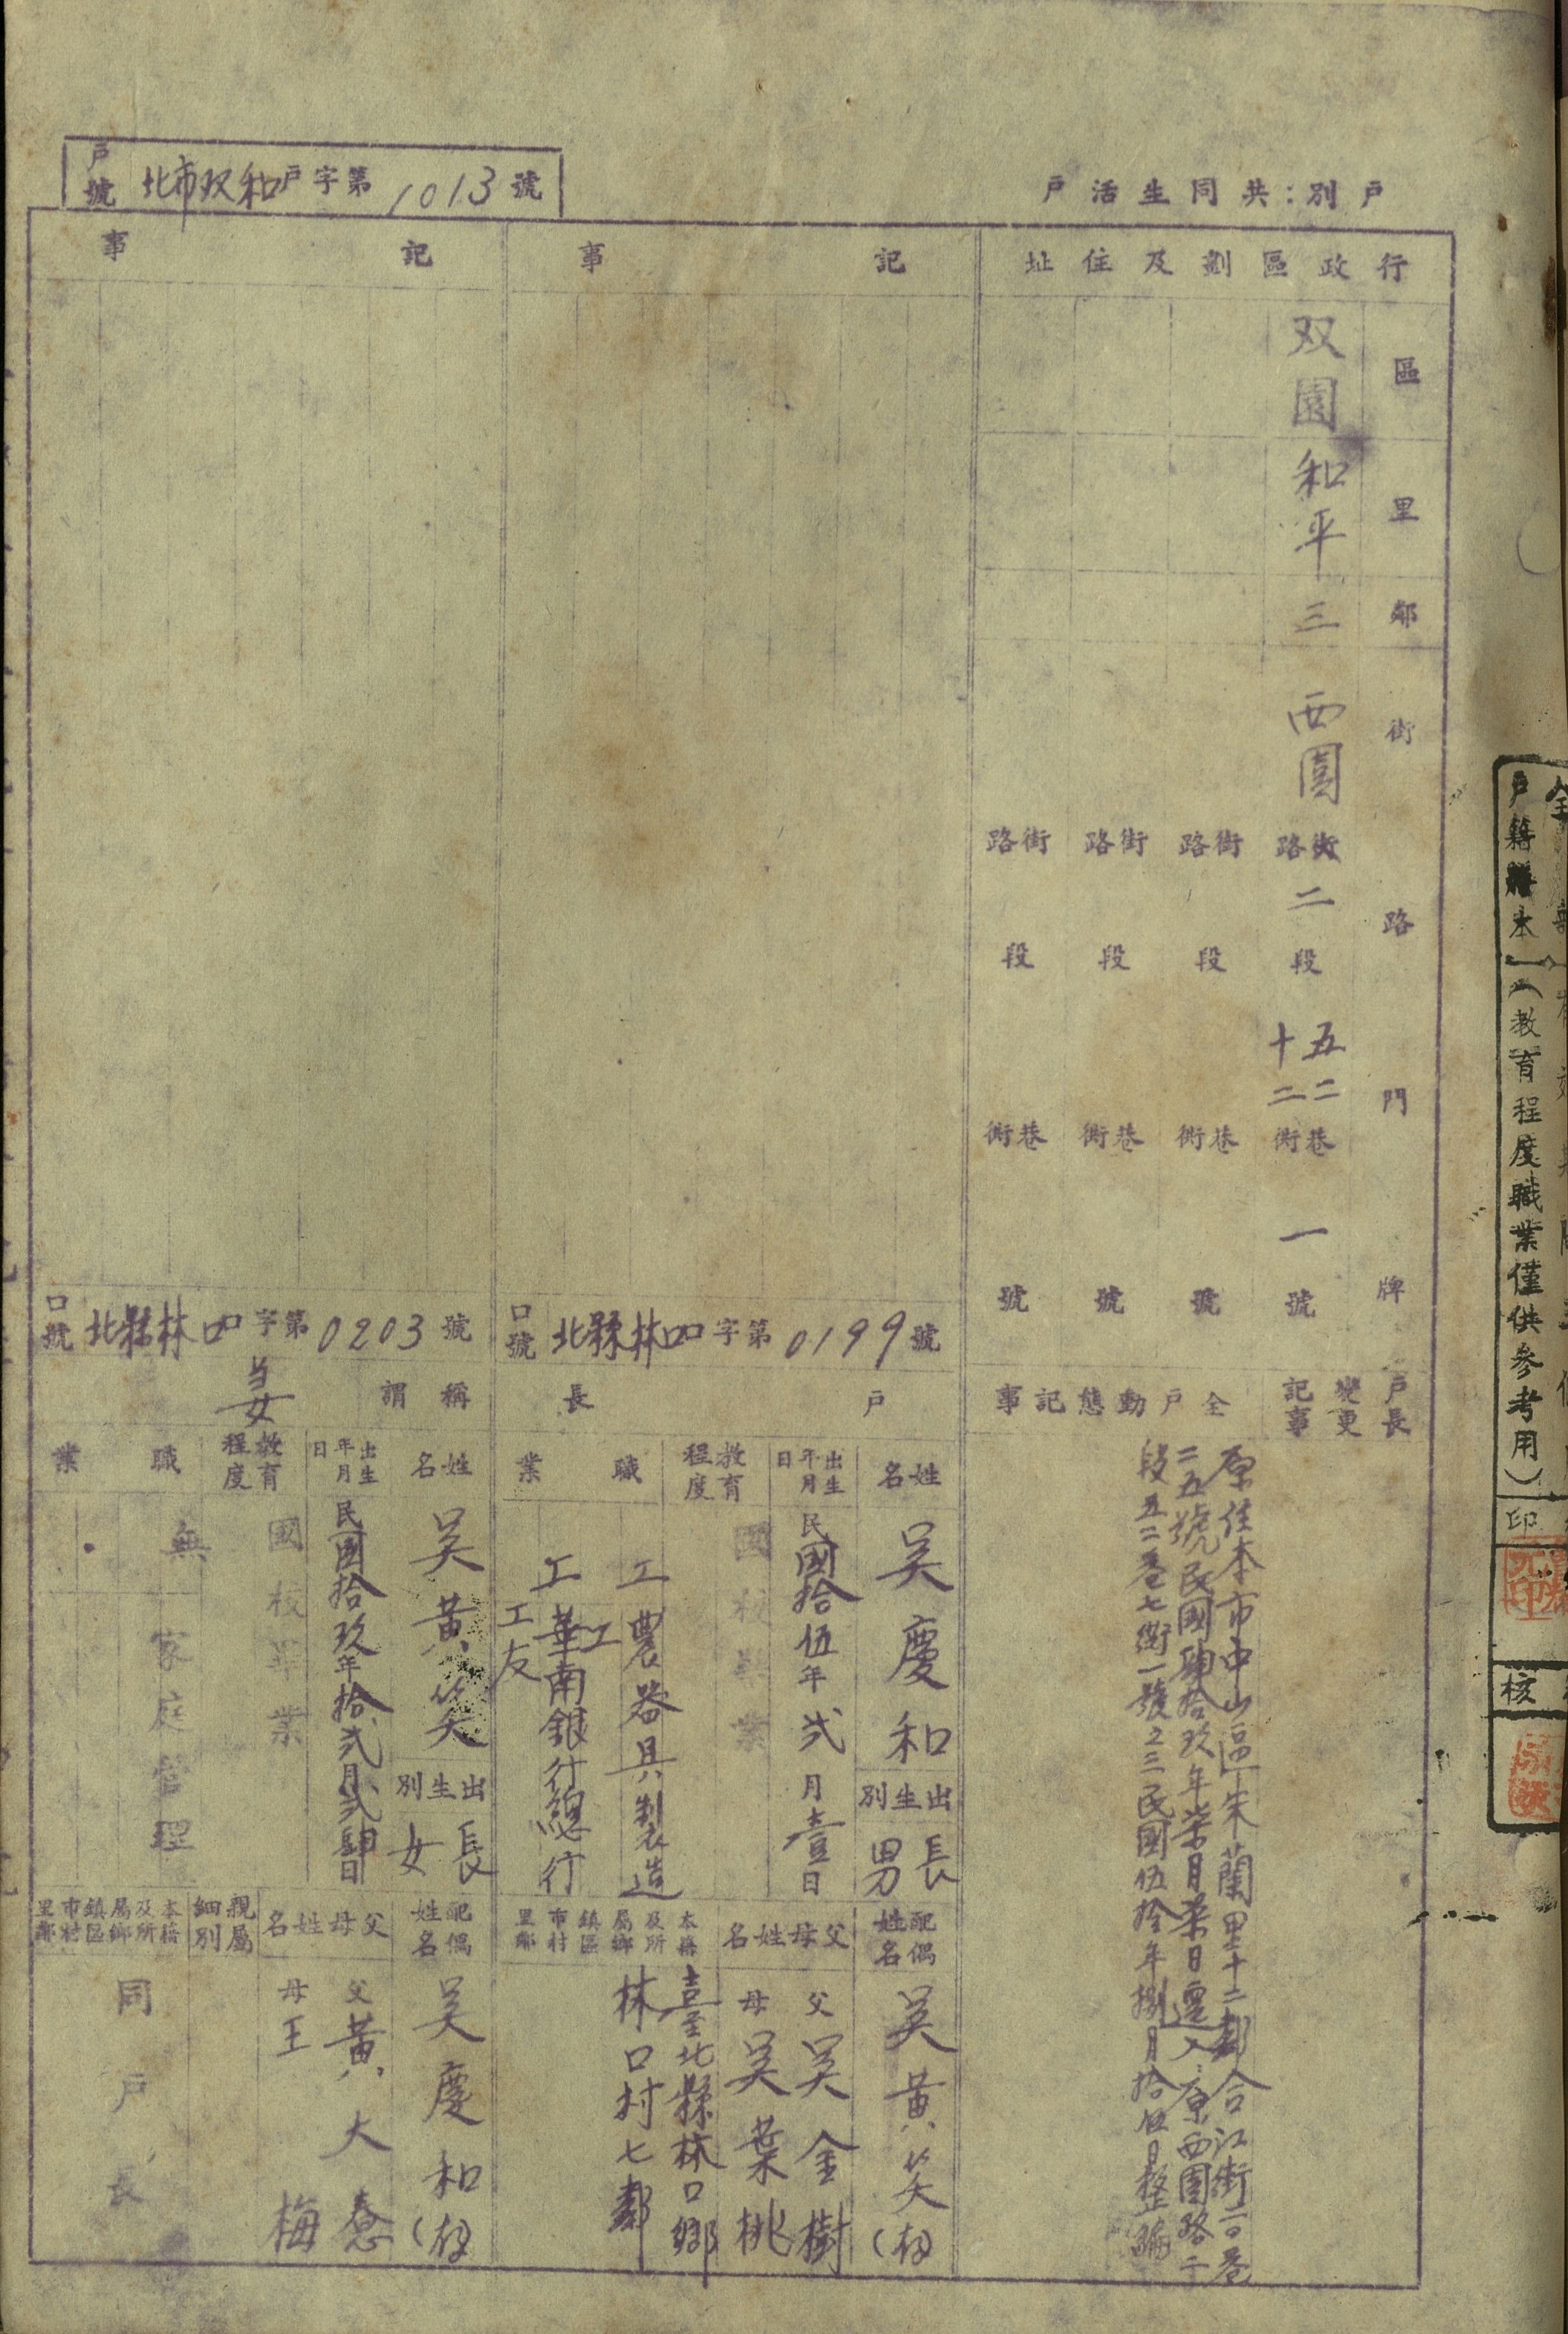 戶別：共同生活戶
戶號 北市双和戶字第1013號
行政區劃及住址
區 里 鄰 街 路 門 牌
双園 和平 三 西園 街路 二段 五二巷 十二衖 一號
街路 段 巷衖 號
街路 段 巷衖 號
街路 段 巷衖 號
戶長變更記事
全戶動態記事
原住本市中山區朱蘭里十二鄰合江街二〇巷
二五號民國肆拾玖年柒月柒日遷入原西園路二
段五二巷七衖一號之三民國伍拾年捌月拾伍日整編
記事
口號 北縣林口口字第0199號
戶長
姓名 吳慶和
出生別 長男
出生年月日 民國拾伍年弍月壹日
教育程度 國校畢業
職業
工 農器具製造
工
工 華南銀行總行
工友
配偶姓名 吳黃笑
父母姓名
父 吳金樹
母 吳葉桃
本籍及所屬鄉鎮區市村里鄰
臺北縣林口鄉
林口村七鄰
記事
口號 北縣林口口字第0203號
稱謂 妻
姓名 吳黃笑
出生別 長女
出生年月日 民國拾玖年拾弍月弍肆日
教育程度 國校畢業
職業
無
家庭管理
配偶姓名 吳慶和
父母姓名
父 黃大
母 王梅
親屬細別
本籍及所屬鄉鎮區市村里鄰
同戶長
戶籍謄本（教育程度職業僅供參考用）
印
核